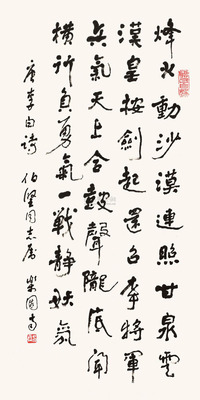 烽火動沙漠連照甘泉雲
漢皇按劍起還召李將軍
兵氣天上合鼓聲隴底聞
橫行負勇氣一戰靜妖氛
唐李白詩 伯堅同志屬